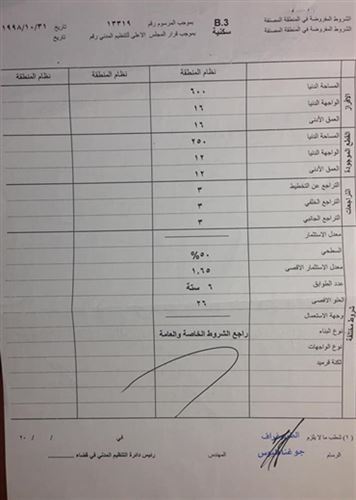 الشروط المفروضة في المنطقة المصنفة B.3 بموجب المرسوم رقم ١٣٣١٩ تاريخ ١٩٩٨/١٠/٣١
الشروط المفروضة في المنطقة المصنفة سكنية بموجب قرار المجلس الاعلى للتنظيم المدني رقم تاريخ
نظام المنطقة نظام المنطقة نظام المنطقة
الافراز
المساحة الدنيا ٦٠٠
الواجهة الدنيا ١٦
العمق الأدنى ١٦
القطع الموجودة
المساحة الدنيا ٢٥٠
الواجهة الدنيا ١٢
العمق الأدنى ١٢
التراجعات
التراجع عن التخطيط ٣
التراجع الخلفي ٣
التراجع الجانبي ٣
شروط مختلفة
معدل الاستثمار
السطحي ٥٠%
معدل الاستثمار الاقصى ١,٦٥
عدد الطوابق ٦ ستة
العلو الاقصى ٢٦
وجهة الاستعمال
نوع البناء راجع الشروط الخاصة والعامة
نوع الواجهات
لكنة قرميد
(١) تشطب ما لا يلزم في / / ٢٠
الرسام المهندس رئيس دائرة التنظيم المدني في قضاء